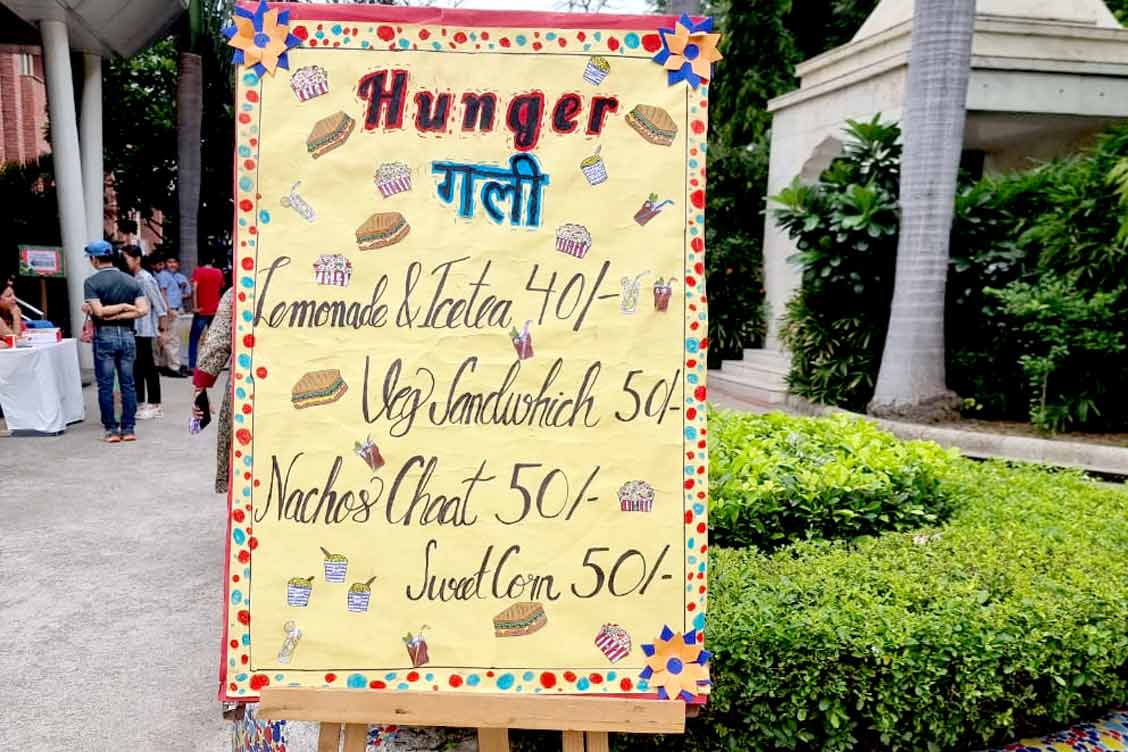 Hunger
गली
Lemonade & Icetea 40/-
Veg Sandwhich 50/-
Nachos Chaat 50/-
Sweet Corn 50/-